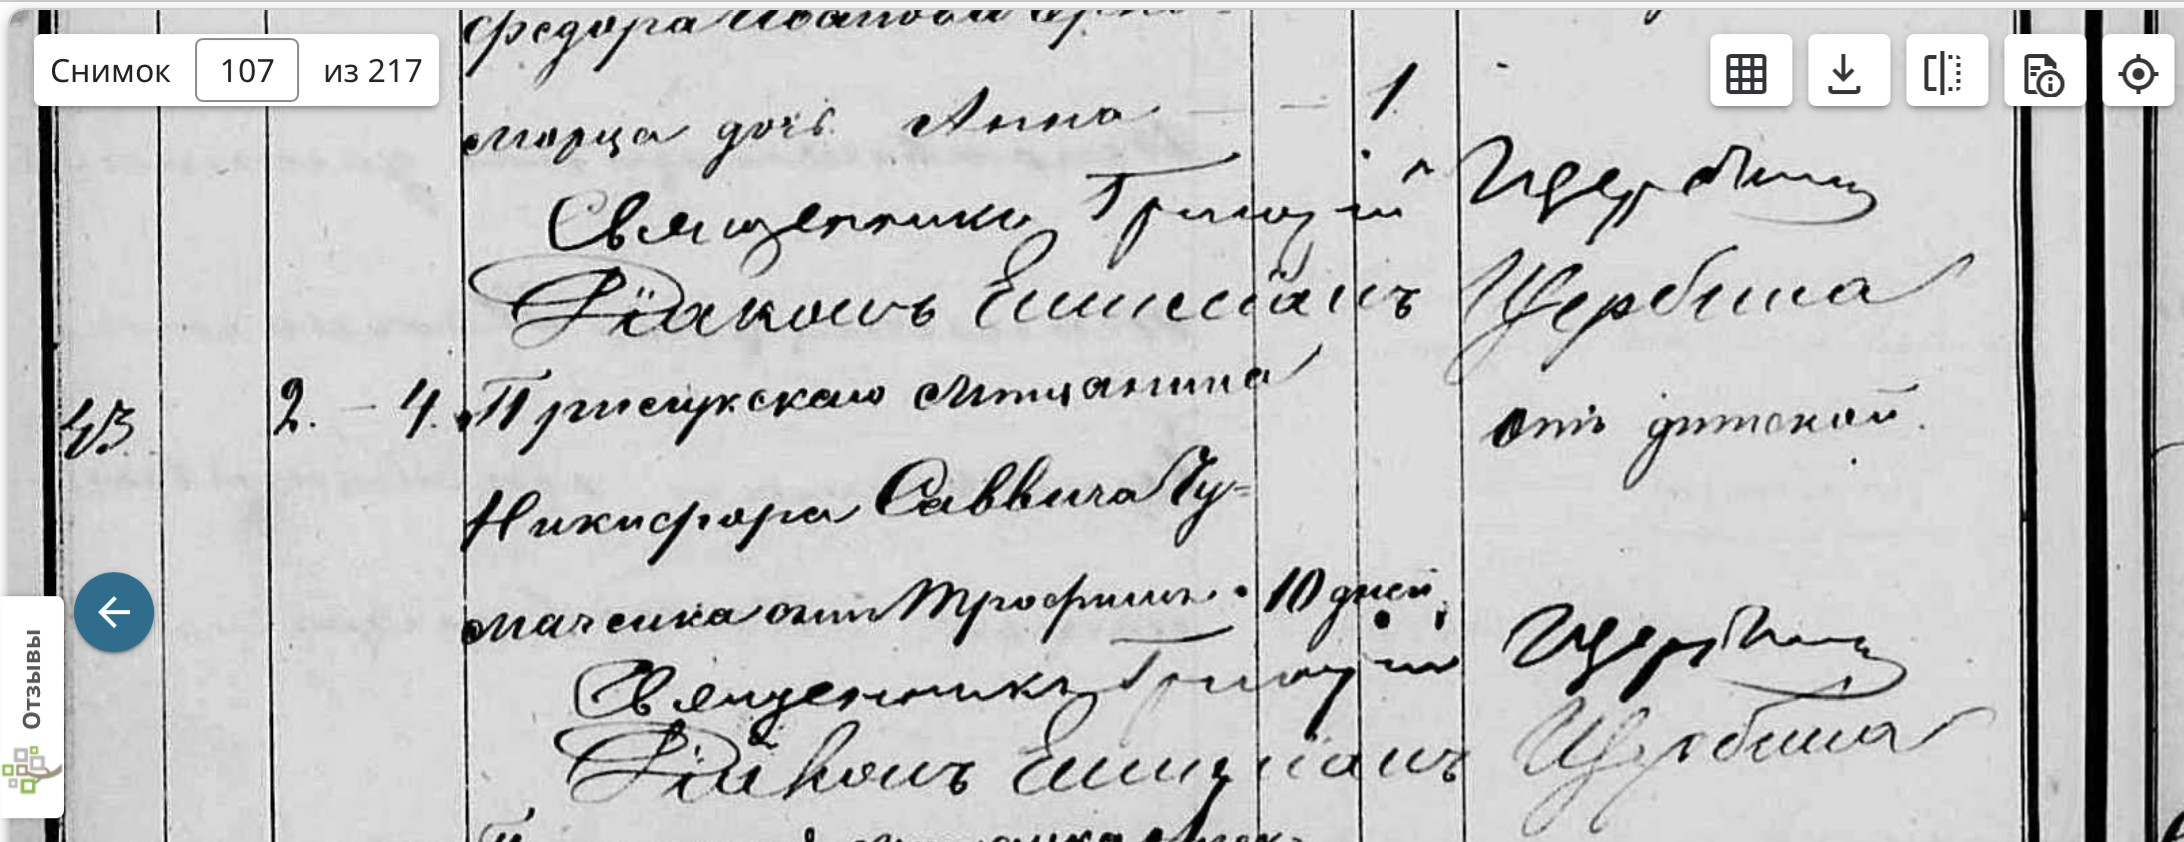 Снимок 107 из 217
Федора Иванова
марца дочь Анна — — 1.
Священникъ Григорій Щербина
Діаконъ Емиліанъ Щербина
43. 2. — 4. мѣщанина отъ дѣтской.
Никифора Саввича Чу-
маченка сынъ Трофимъ. 10 дней.
Священникъ Григорій Щербина
Діаконъ Емиліанъ Щербина
Отзывы